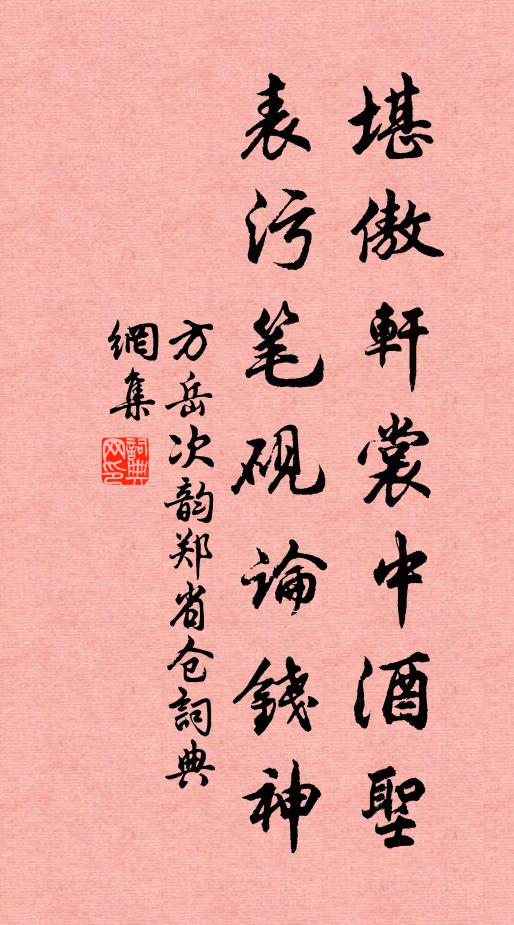 堪傲軒裳中酒聖
表污笔砚論錢神
方岳次韵郑省仓詞典
網集
詞典
网印